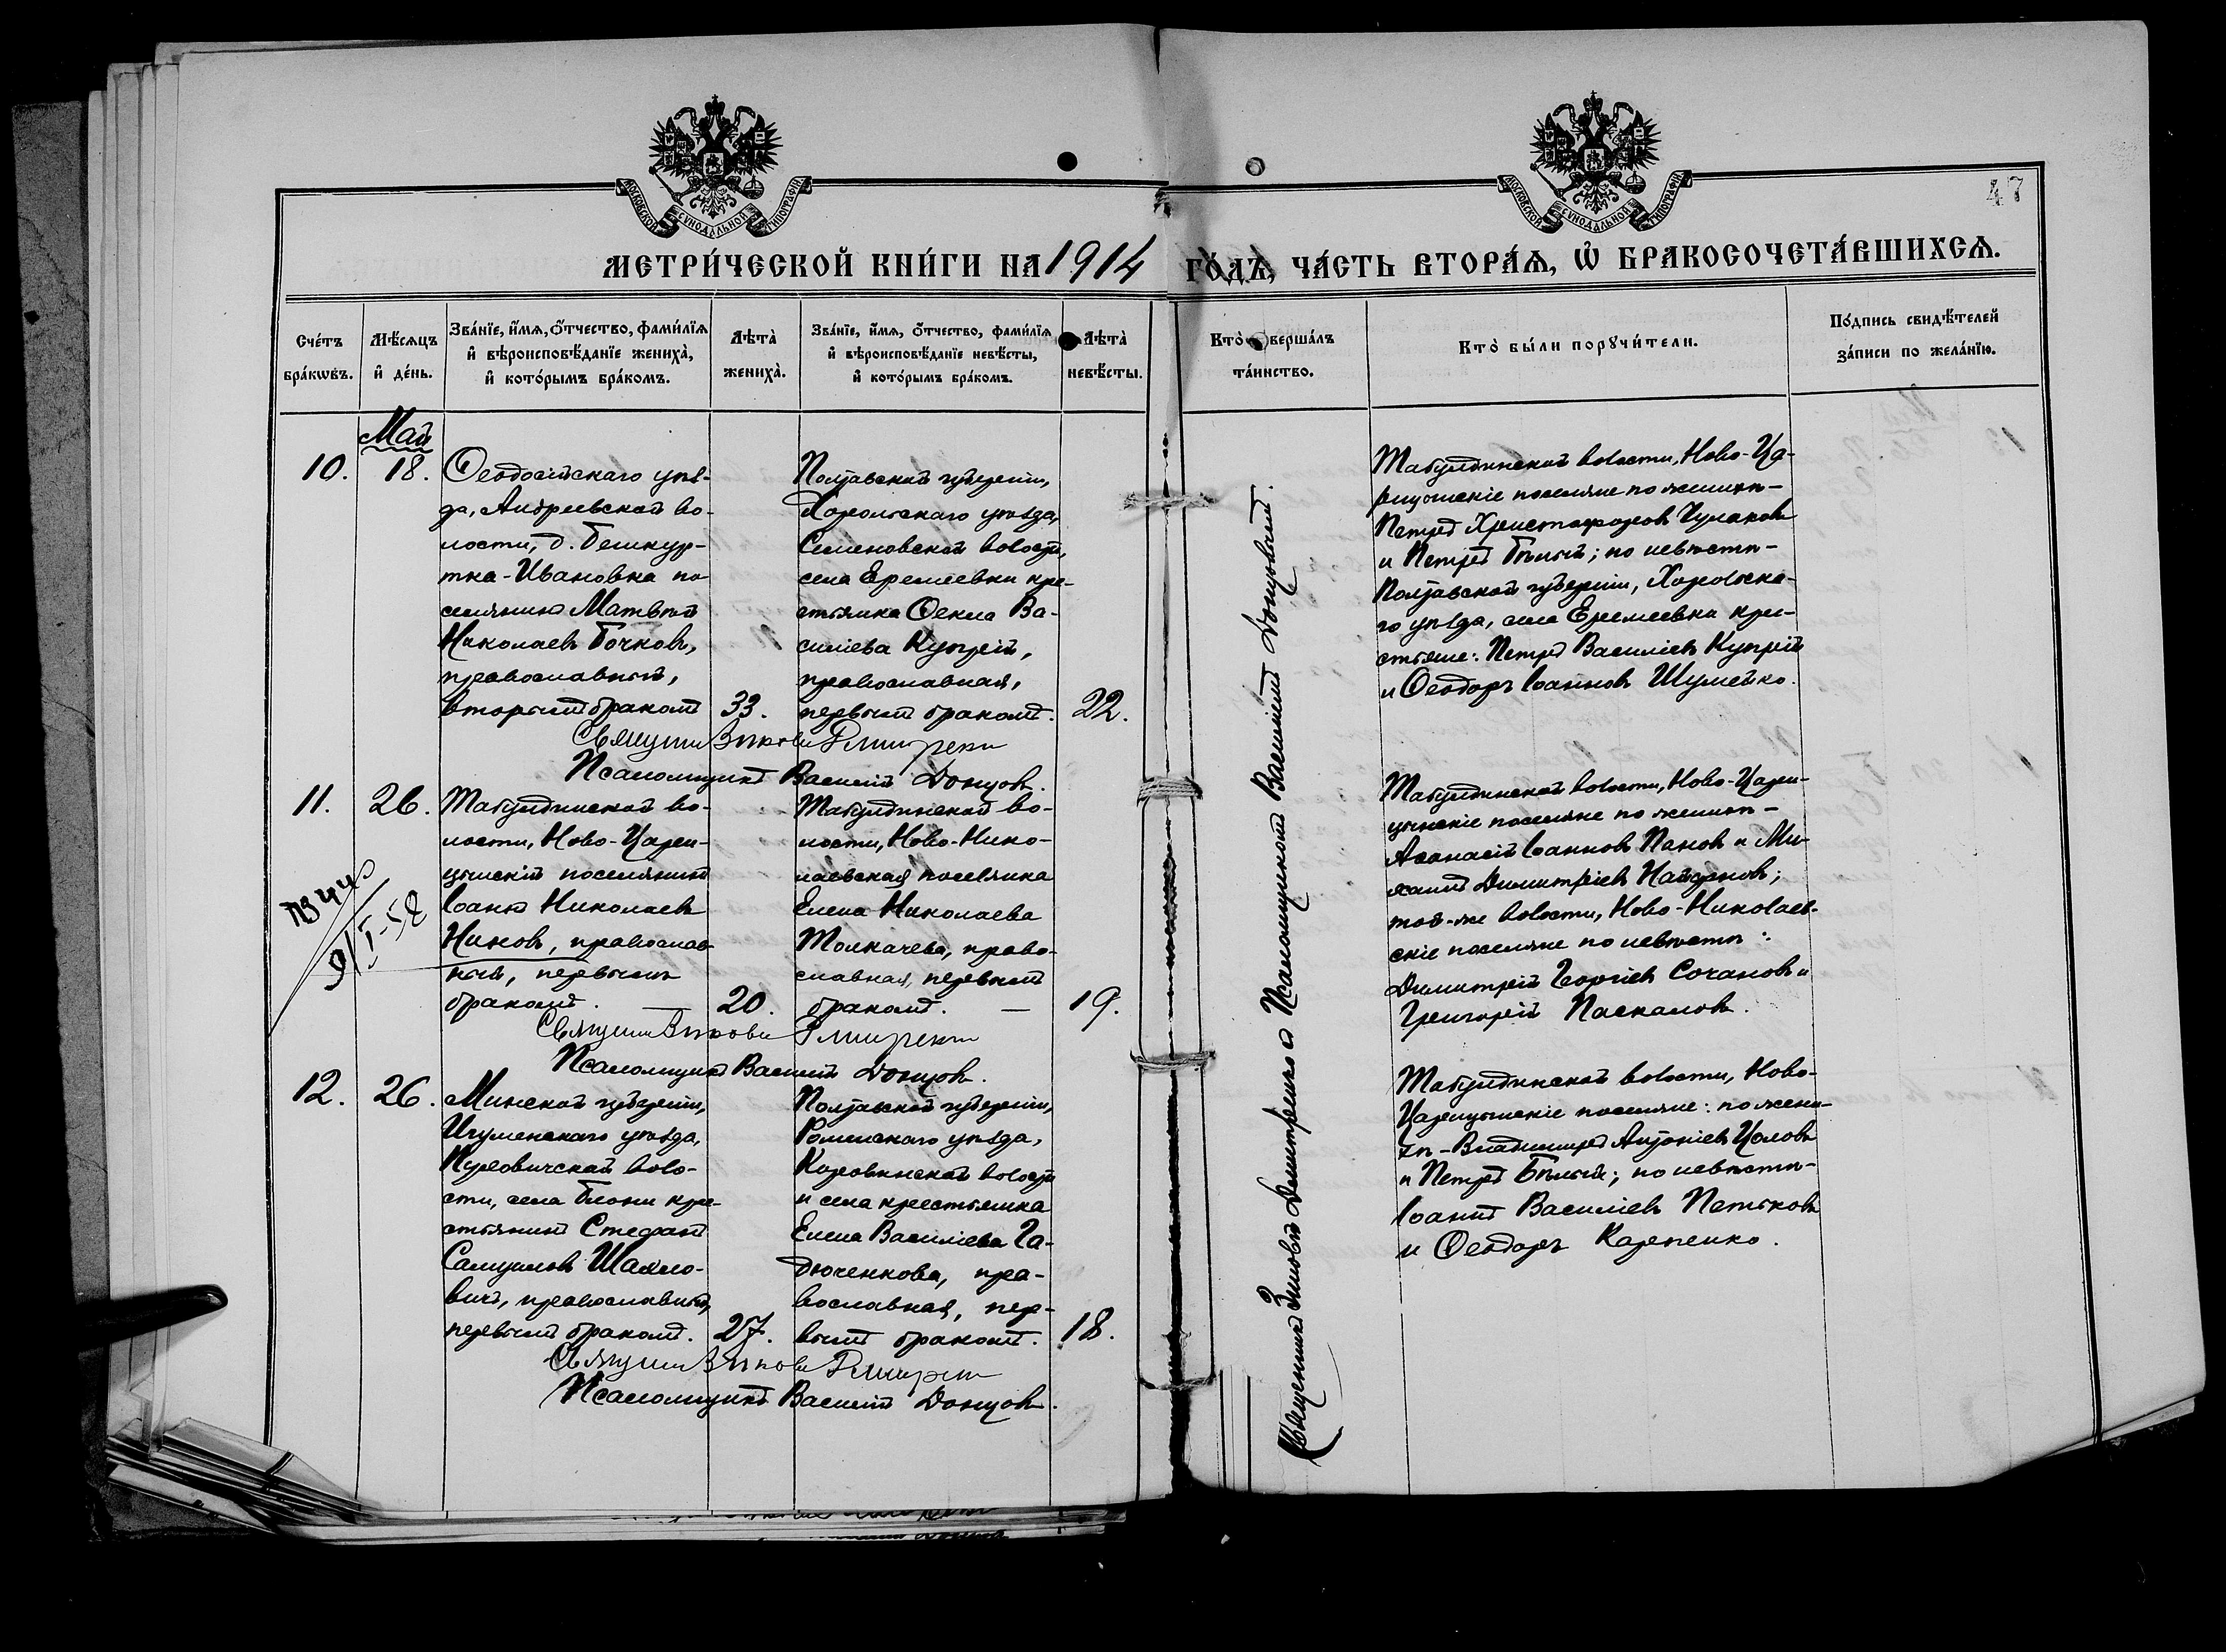 МОСКОВСКОЙ СУНОДАЛЬНОЙ ТИПОГРАФІИ
МОСКОВСКОЙ СУНОДАЛЬНОЙ ТИПОГРАФІИ
47
МЕТРИ́ЧЕСКОЙ КНИ́ГИ НА 1914 ГО́ДЪ, ЧА́СТЬ ВТОРА́Ѧ, Ѡ҆ БРАКОСОЧЕТА́ВШИХСѦ.
Сче́тъ бра́кѡвъ.
Мѣ́сѧцъ и҆ де́нь.
Зва́нїе, и҆́мѧ, ѻ҆́тчество, фами́лїѧ
и҆ вѣроисповѣ́данїе жениха̀,
и҆ кото́рымъ бра́комъ.
Лѣта̀ жениха̀.
Зва́нїе, и҆́мѧ, ѻ҆́тчество, фами́лїѧ
и҆ вѣроисповѣ́данїе невѣ́сты,
и҆ кото́рымъ бра́комъ.
Лѣта̀ невѣ́сты.
Кто̀ соверша́лъ та́инство.
Кто̀ бы́ли порꙋчи́тели.
По́дпись свидѣ́телей
за́писи по жела́нїю.
Май
10.
18.
Ѳеодосійскаго уѣз-
да, Андреевской во-
лости, д. Бешкур-
тка-Ивановка по
селянинъ Матвѣй
Николаевъ Бочковъ,
православный,
вторымъ бракомъ
33.
Полтавской губерніи,
Хорольскаго уѣзда,
Семеновской волости,
села Еремеевки кре-
стьянка Ѳекла Ва-
силіева Купрій,
православная,
первымъ бракомъ.
22.
Табулдинской волости, Ново-Ца-
рицынскіе поселяне по женихѣ-
Петръ Христофоровъ Чумаковъ
и Петръ Бѣлый; по невѣстѣ-
Полтавской губерніи, Хорольска-
го уѣзда, села Еремеевки кре-
стьяне: Петръ Василіевъ Купрій
и Ѳеодоръ Іоанновъ Шумейко.
Священникъ Зиновій Дмитренко
Псаломщикъ Василій Донцовъ.
11.
26.
Табулдинской во-
лости, Ново-Цари-
цынскій поселянинъ
Іоаннъ Николаевъ
Ниновъ, православ-
ный, первымъ
бракомъ.
20.
Табулдинской во-
лости, Ново-Нико-
лаевская поселянка
Елена Николаева
Толкачева, право-
славная, первымъ
бракомъ.
19.
Табулдинской волости, Ново-Цари-
цынскіе поселяне по женихѣ-
Аѳанасій Іоанновъ Пановъ и Ми-
хаилъ Димитріевъ Найденовъ;
той-же волости, Ново-Николаев-
скіе поселяне по невѣстѣ:
Димитрій Георгіевъ Сочановъ и
Григорій Паскаловъ.
Священникъ Зиновій Дмитренко
Псаломщикъ Василій Донцовъ.
12.
26.
Минской губерніи,
Игуменскаго уѣзда,
Пуховичской воло-
сти, села Блони кре-
стьянинъ Стефанъ
Самуиловъ Шахно-
вичъ, православный,
первымъ бракомъ.
27.
Полтавской губерніи,
Роменскаго уѣзда,
Коровинской волости
и села крестьянка
Елена Василіева Га-
дюченкова, пра-
вославная, пер-
вымъ бракомъ.
18.
Табулдинской волости, Ново-
Царицынскіе поселяне: по жени-
хѣ-Владиміръ Антоніевъ Цоловъ
и Петръ Бѣлый; по невѣстѣ-
Іоаннъ Василіевъ Петковъ
и Ѳеодоръ Карпенко.
Священникъ Зиновій Дмитренко
Псаломщикъ Василій Донцовъ.
Священникъ Зиновій Димитренко съ Псаломщикомъ Василіемъ Донцовымъ.
9/I-58